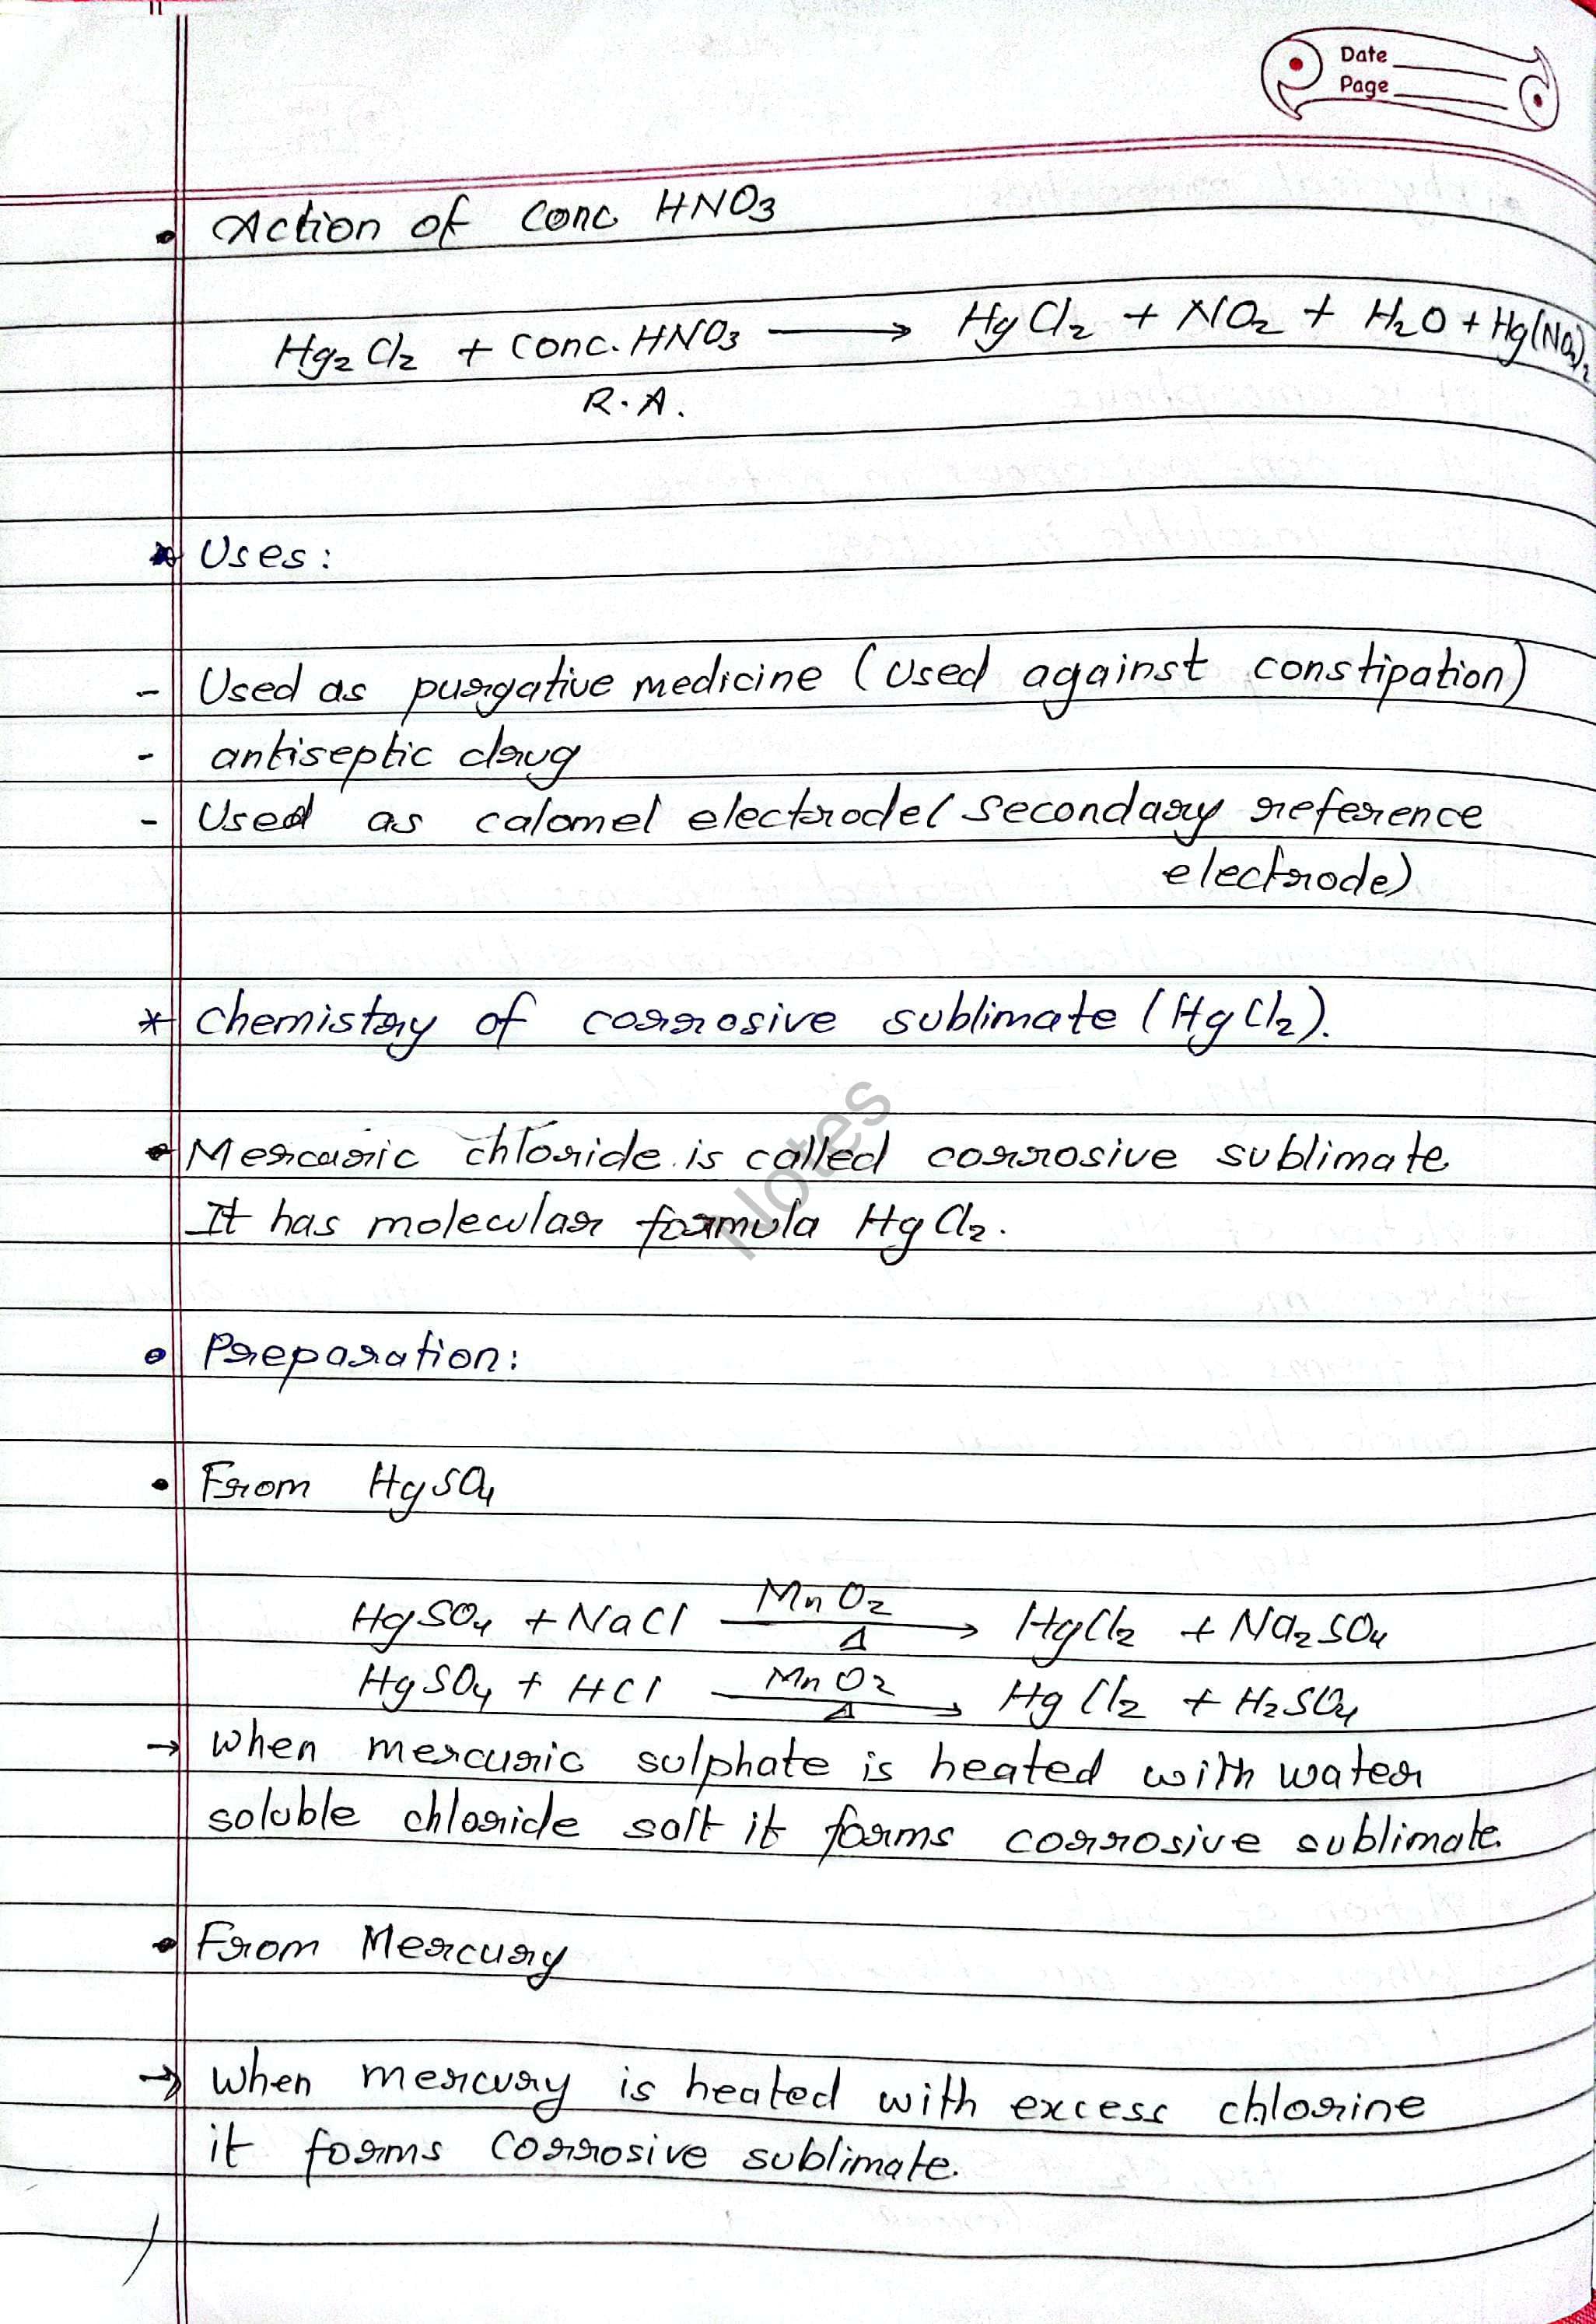 Date
Page
• Action of conc HNO3
Hg2Cl2 + conc. HNO3 ⟶ HgCl2 + NO2 + H2O + Hg(NO3)2
R.A.
* Uses:
- Used as purgative medicine (used against constipation)
- antiseptic drug
- Used as calomel electrode( secondary reference
electrode)
* Chemistry of corrosive sublimate (HgCl2).
• Mercuric chloride is called corrosive sublimate
It has molecular formula HgCl2.
Notes
• Preparation:
• From HgSO4
HgSO4 + NaCl MnO2 ⟶ Δ HgCl2 + Na2SO4
HgSO4 + HCl MnO2 ⟶ Δ HgCl2 + H2SO4
→ When mercuric sulphate is heated with water
soluble chloride salt it forms corrosive sublimate.
• From Mercury
→ When mercury is heated with excess chlorine
it forms corrosive sublimate.